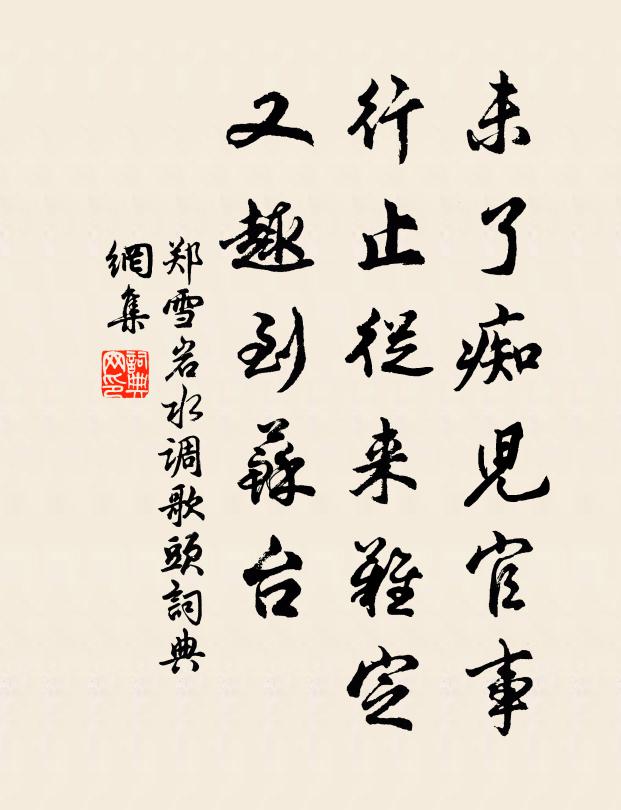 未了痴児官事
行止從来難定
又趣到蘇台
郑雪岩水调歌頭詞典
網集
詞典網印